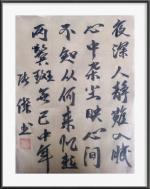 夜深人静难入眠
心中杂尘映心间
不知从何来忆起
两鬓斑如己十年